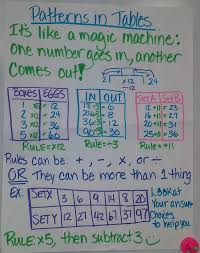 Patterns in Tables
It's like a magic machine:
One number goes in, another
comes out!
2 x12 24
BOXES EGGS
1 x12 = 12
2 x12 = 24
3 x12 = 36
5 x12 = 60
Rule = x12
IN OUT
18÷3 = 6
24÷3 = 8
36÷3 = 12
90÷3 = 30
Rule = ÷3
Set A Set B
12 +11 = 23
16 +11 = 27
20 +11 = 31
25 +11 = 36
Rule = +11
Rules can be +, -, x, or ÷
OR They can be more than 1 thing
EX:
SET X 3 6 9 14 20
SET Y 12 27 42 67 97
Look at
Your answer
Choices
to help you
Rule: x5, then subtract 3